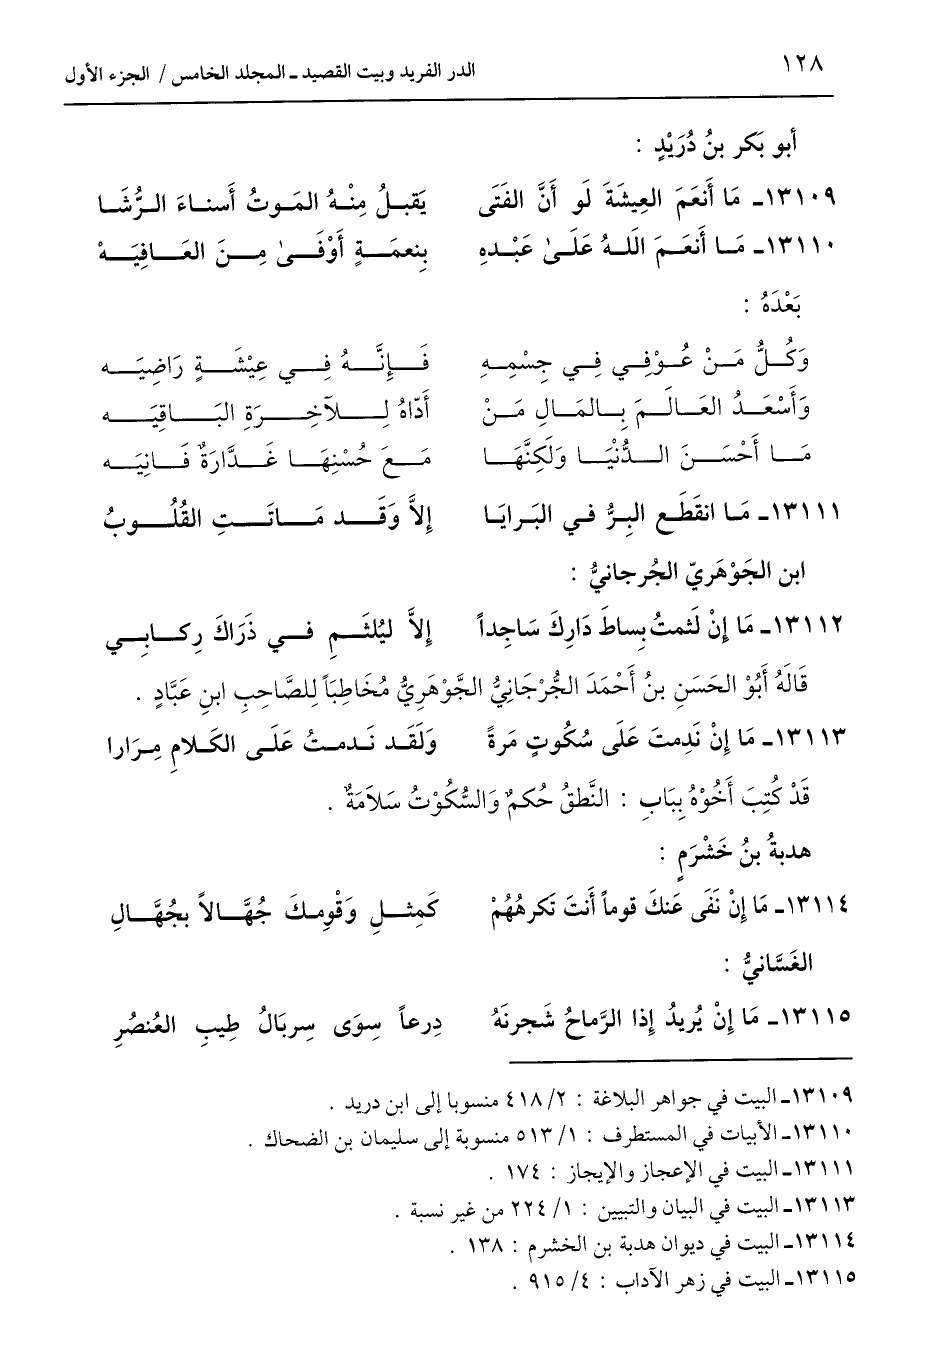 ١٢٨ الدر الفريد وبيت القصيد ـ المجلد الخامس / الجزء الأول
أبو بَكر بنُ دُرَيْدٍ :
١٣١٠٩ـ مَا أَنعَمَ العِيشَةَ لَو أَنَّ الفَتَى يَقبلُ مِنْهُ المَوتُ أَسناءَ الرُّشَا
١٣١١٠ـ مَا أَنعَمَ اللهُ عَلَىٰ عَبْدهِ بِنعمَةٍ أَوْفَىٰ مِنَ العَافِيَهْ
بَعْدَهُ :
وَكُلُّ مَنْ عُوْفِي فِي جِسْمِهِ فَإِنَّهُ فِي عِيْشَةٍ رَاضِيَه
وَأَسْعَدُ العَالَمِ بِالمَالِ مَنْ أَدّاهُ لِلآخِرَةِ البَاقِيَه
مَا أَحْسَنَ الدُّنْيَا وَلَكِنَّهَا مَعَ حُسْنِهَا غَدَّارَةٌ فَانِيَه
١٣١١١ـ مَا انقَطَع البِرُّ في البَرايَا إلاَّ وَقَد مَاتَتِ القُلُوبُ
ابن الجَوْهَريّ الجُرجانيُّ :
١٣١١٢ـ مَا إِنْ لَثمتُ بِساطَ دَارِكَ سَاجِداً إلاَّ ليُلثَمِ في ذَرَاكَ رِكابي
قَالَهُ أَبُوْ الحَسَنِ بنُ أَحْمَدَ الجُّرْجَانِيُّ الجَّوْهَرِيُّ مُخَاطِبَاً لِلصَّاحِبِ ابنِ عَبَّادٍ .
١٣١١٣ـ مَا إِنْ نَدِمتَ عَلَى سُكُوتٍ مَرةً وَلَقَد نَدمتُ عَلَى الكَلامِ مِرَارا
قَدْ كُتِبَ أَخُوْهُ بِبَابِ : النَّطقُ حُكمٌ وَالسُّكُوْتُ سَلاَمَةٌ .
هدبةُ بنُ خَشْرَمٍ :
١٣١١٤ـ مَا إِنْ نَفَى عَنكَ قوماً أَنتَ تَكرهُهُمْ كَمِثلِ وَقْوِمكَ جُهَّالاً بجُهَّالِ
الغَسَّانيُّ :
١٣١١٥ـ مَا إِنْ يُريدُ إِذا الرَّماحُ شَجرنَهُ دِرعاً سِوَى سِربَالُ طِيبِ العُنصُرِ
١٣١٠٩ـ البيت في جواهر البلاغة : ٢/ ٤١٨ منسوبا إلى ابن دريد .
١٣١١٠ـ الأبيات في المستطرف : ١/ ٥١٣ منسوبة إلى سليمان بن الضحاك .
١٣١١١ـ البيت في الإعجاز والإيجاز : ١٧٤ .
١٣١١٣ـ البيت في البيان والتبيين : ١/ ٢٢٤ من غير نسبة .
١٣١١٤ـ البيت في ديوان هدبة بن الخشرم : ١٣٨ .
١٣١١٥ـ البيت في زهر الآداب : ٤/ ٩١٥ .